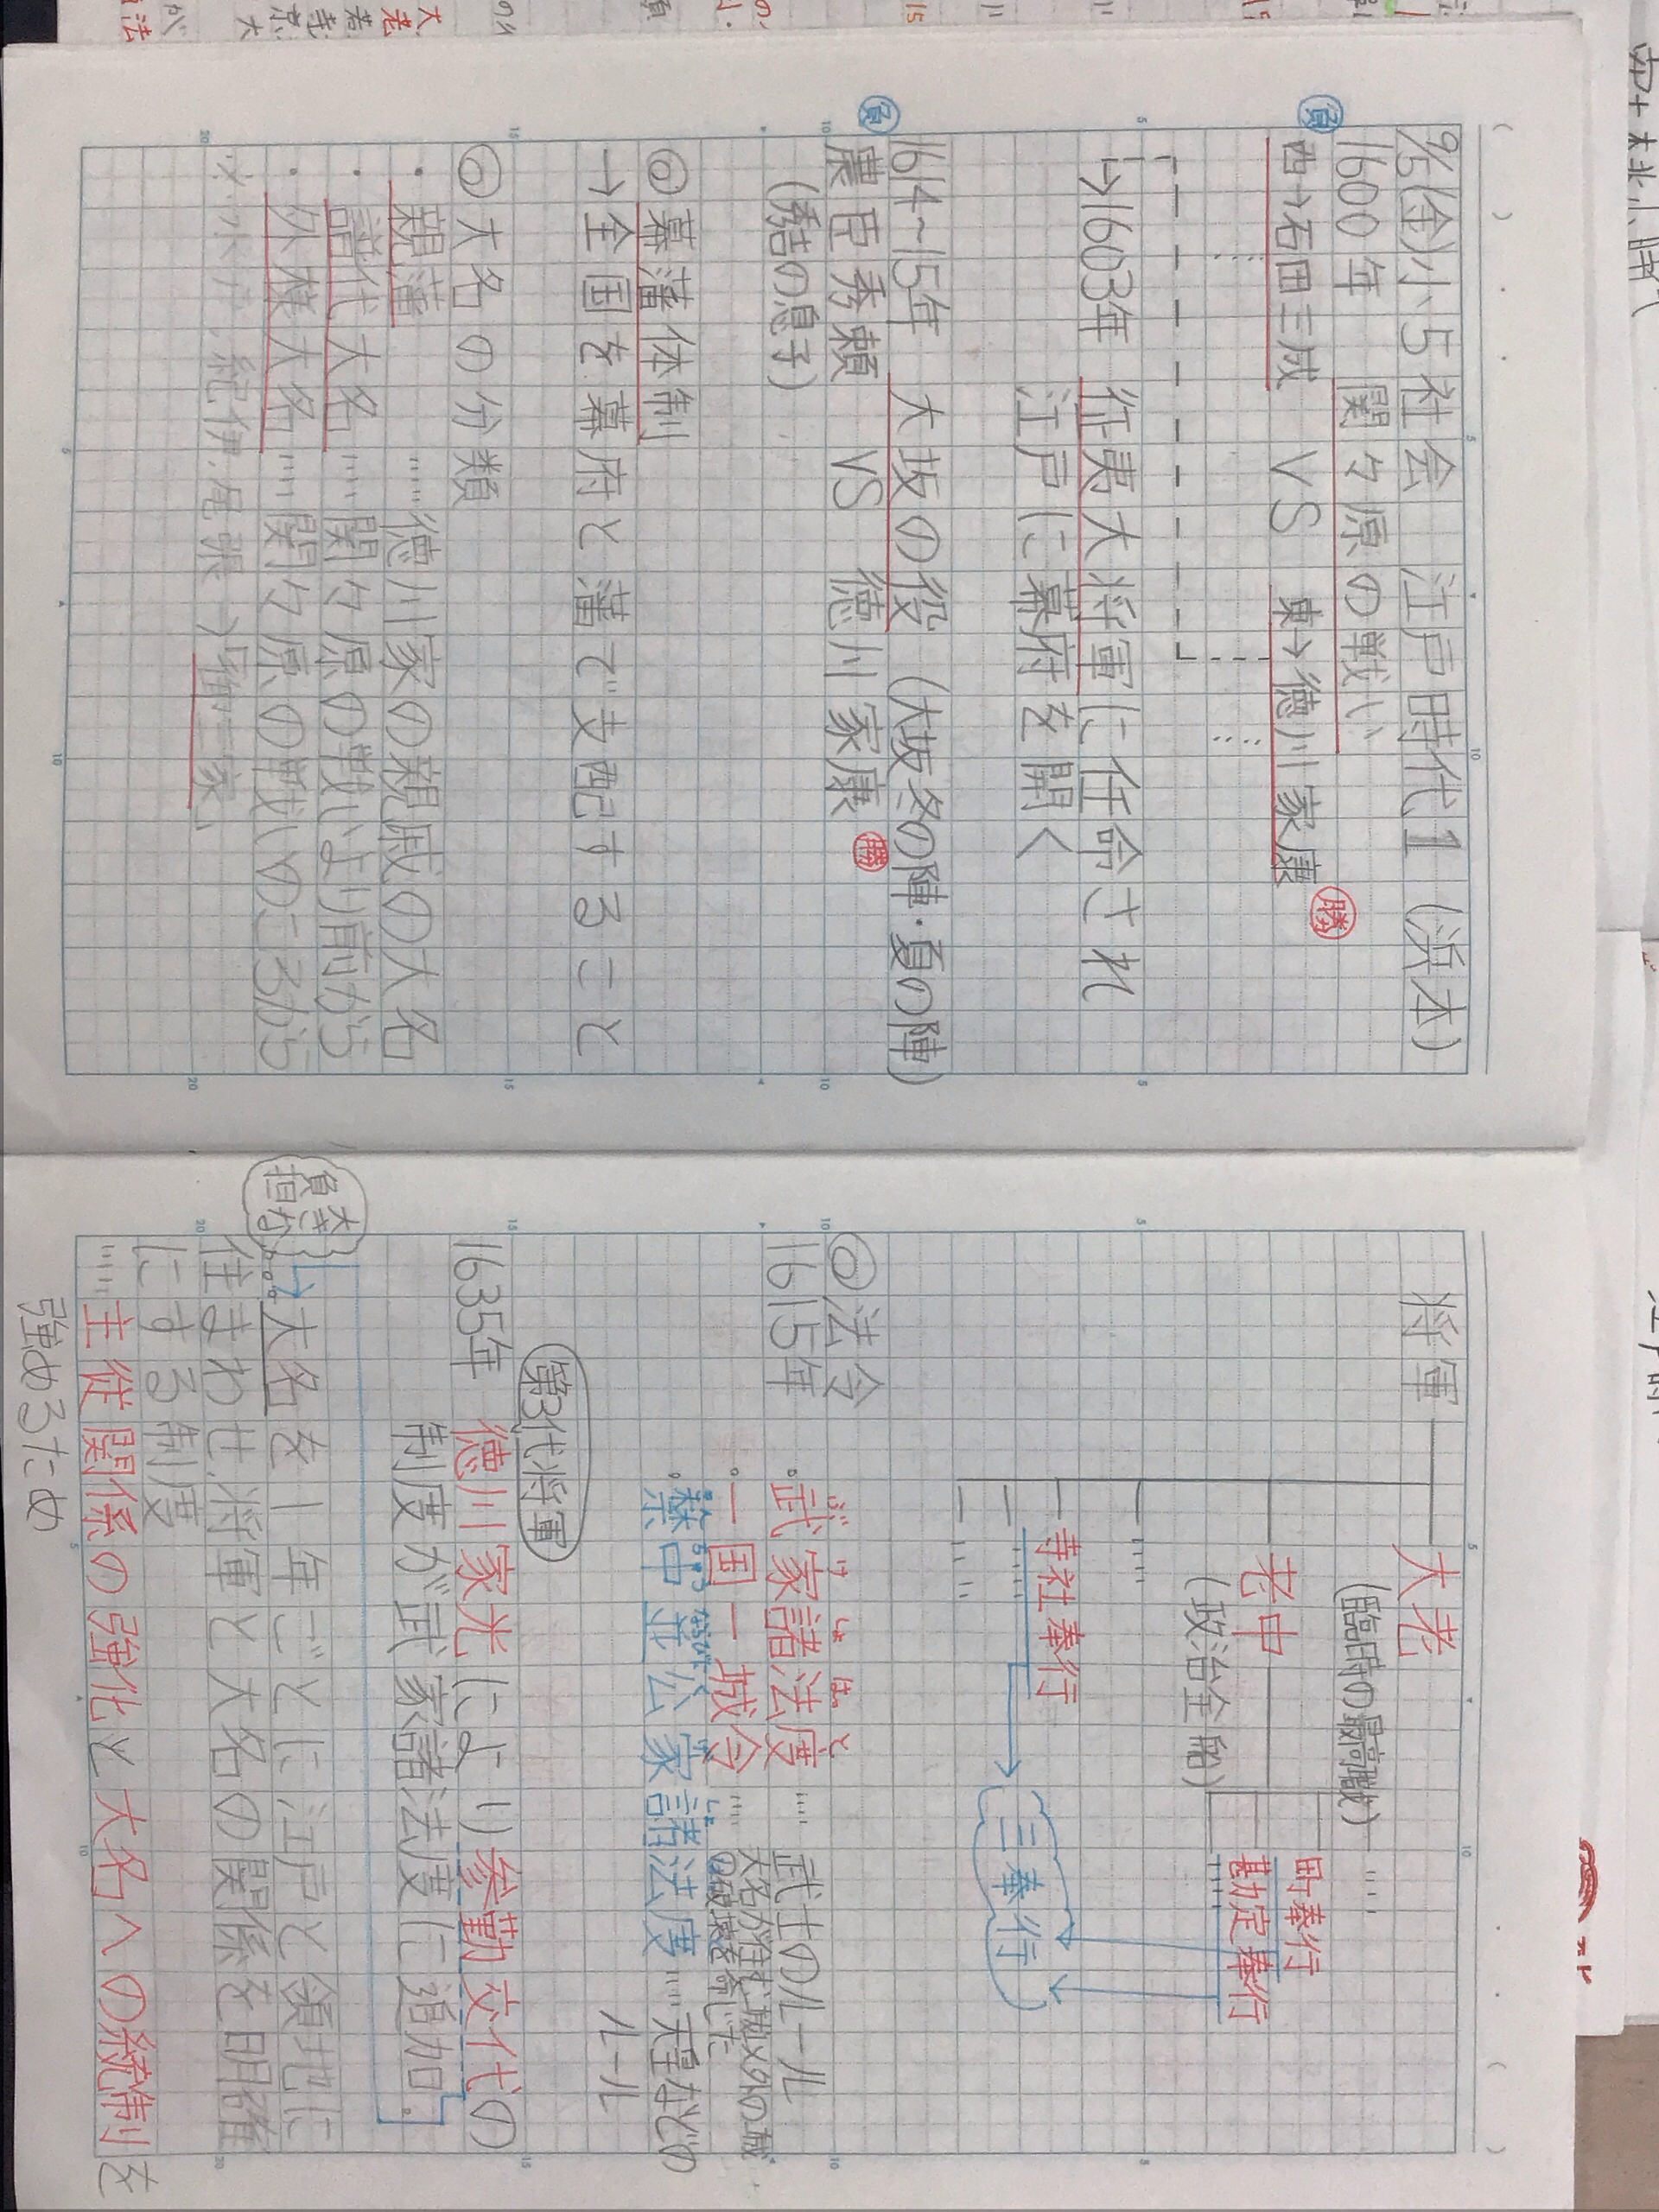 9/5(金)小5社会 江戸時代1(浜本)
1600年 関ヶ原の戦い
負 西→石田三成 VS 東→徳川家康 勝
→1603年 征夷大将軍に任命され
江戸に幕府を開く
1614~15年 大坂の役 (大坂冬の陣・夏の陣)
負 豊臣秀頼 VS 徳川家康 勝
(秀吉の息子)
◎幕藩体制
→全国を幕府と藩で支配すること
◎大名の分類
・親藩……徳川家の親戚の大名
・譜代大名……関ヶ原の戦いより前から
・外様大名……関ヶ原の戦いのころから
※水戸、紀伊、尾張→「御三家」
将軍 大老
(臨時の最高職)
老中
(政治全般)
町奉行
勘定奉行
寺社奉行
三奉行
◎法令
1615年
ぶ け しょ はっ と
・武家諸法度……武士のルール
・一国一城令……大名が住む城以外の城
の破壊を命じた
・禁中並公家諸法度……天皇などの
ルール
第3代将軍
1635年 徳川家光により参勤交代の
制度が武家諸法度に追加。
大きな
負担
→大名を1年ごとに江戸と領地に
住まわせ、将軍と大名の関係を明確
にする制度
……主従関係の強化と大名への統制を
強めるため